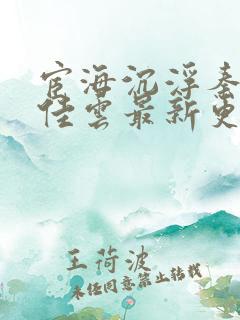 宦海沉浮秦
佳雲最新更
王荷波
未任同意禁止转载